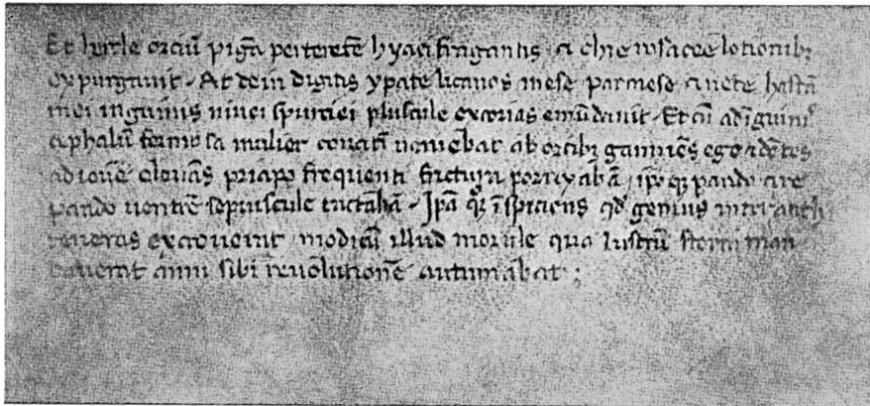 Et hercle orciū pigā perteretē hyaci fragantis · & chie rosacee lotionibꝫ
expurgauit · At dein digitis ypate licanos mese parmese & nete hastā
mei inguinis niuei spurciei pluscule excorias emūdauit · Et cū ad īguinis
cephalū formosa mulier concitī ueniebat ab orcibꝫ ganniēs ego & dētes
ad iouē eleuās priapo frequenti frictura porrixabā ipoqꝫ pando & re
pando uentrē sepiuscule tactabā · Ipā qꝫ īspiciens qd genius inter anth
teneras excreuerit modicū illud morule qua lustrū sterni man
dauerat anni sibi reuolutionē autumabat ;